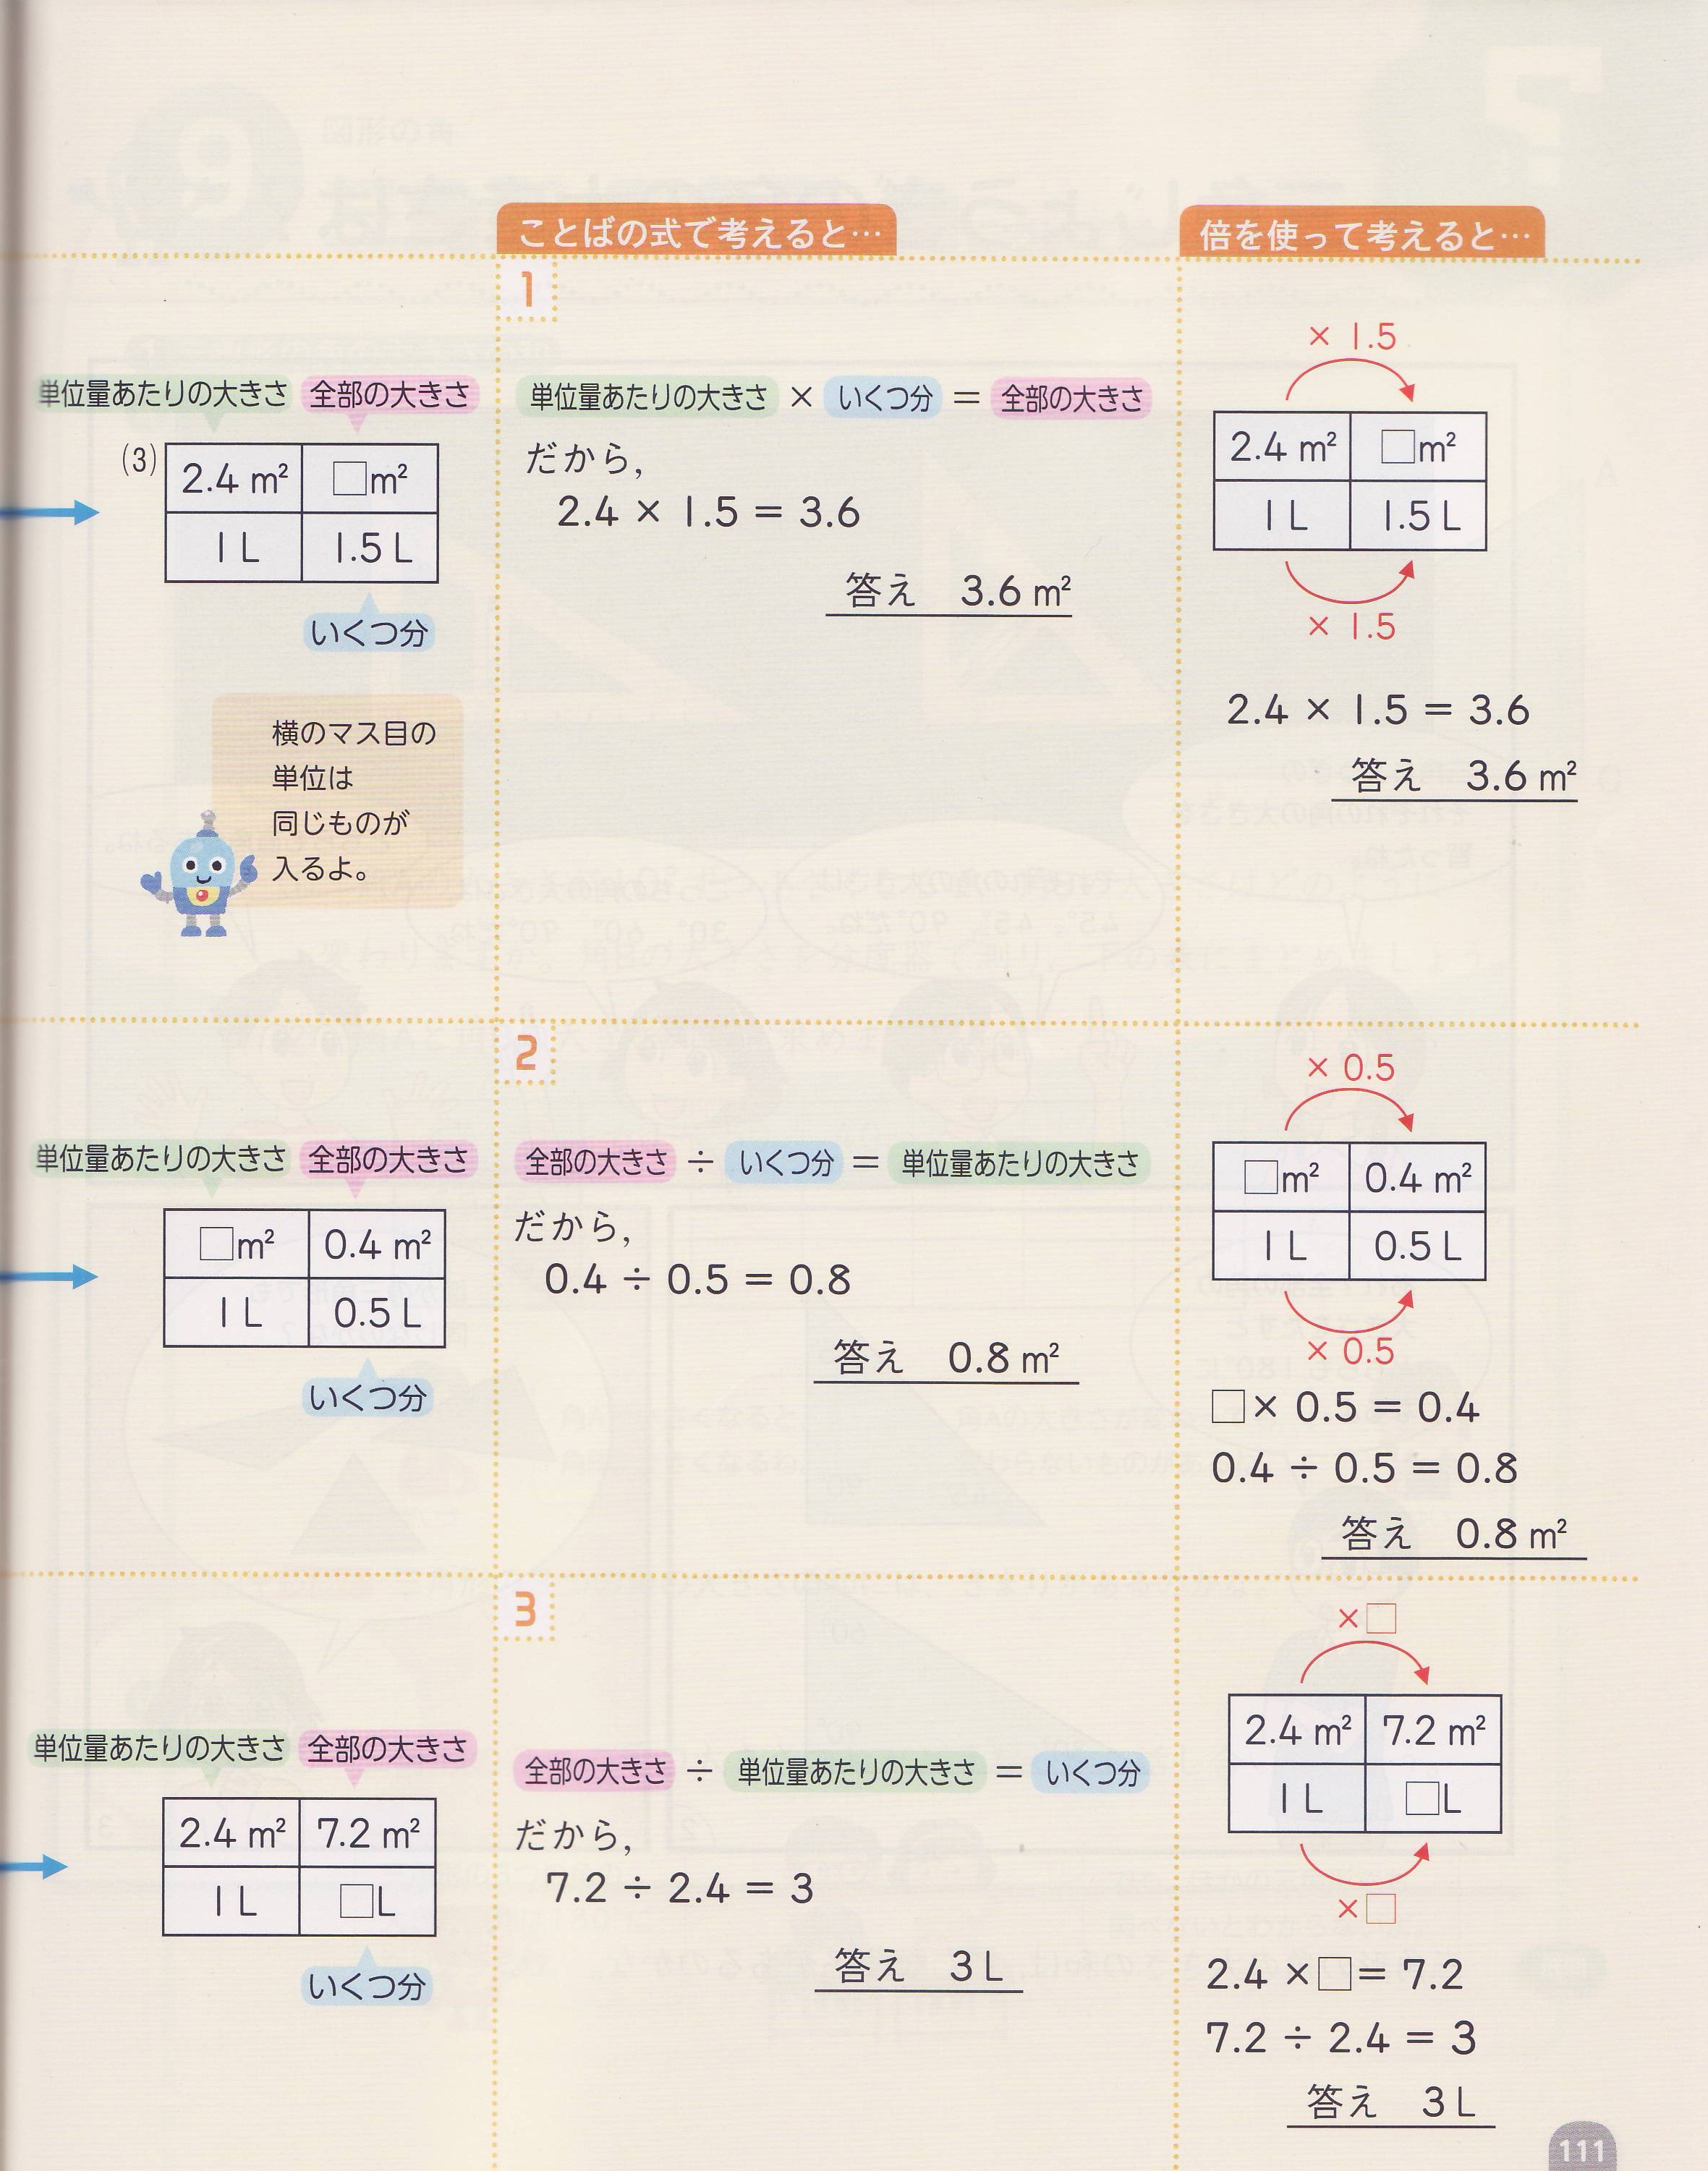 ことばの式で考えると…
倍を使って考えると…
1
単位量あたりの大きさ 全部の大きさ
(3)
2.4 m² □m²
1 L 1.5 L
いくつ分
横のマス目の
単位は
同じものが
入るよ。
単位量あたりの大きさ × いくつ分 = 全部の大きさ
だから,
2.4 × 1.5 = 3.6
答え 3.6 m²
× 1.5
2.4 m² □m²
1 L 1.5 L
× 1.5
2.4 × 1.5 = 3.6
答え 3.6 m²
2
単位量あたりの大きさ 全部の大きさ
□m² 0.4 m²
1 L 0.5 L
いくつ分
全部の大きさ ÷ いくつ分 = 単位量あたりの大きさ
だから,
0.4 ÷ 0.5 = 0.8
答え 0.8 m²
× 0.5
□m² 0.4 m²
1 L 0.5 L
× 0.5
□× 0.5 = 0.4
0.4 ÷ 0.5 = 0.8
答え 0.8 m²
3
単位量あたりの大きさ 全部の大きさ
2.4 m² 7.2 m²
1 L □L
いくつ分
全部の大きさ ÷ 単位量あたりの大きさ = いくつ分
だから,
7.2 ÷ 2.4 = 3
答え 3 L
×□
2.4 m² 7.2 m²
1 L □L
×□
2.4 ×□= 7.2
7.2 ÷ 2.4 = 3
答え 3 L
111